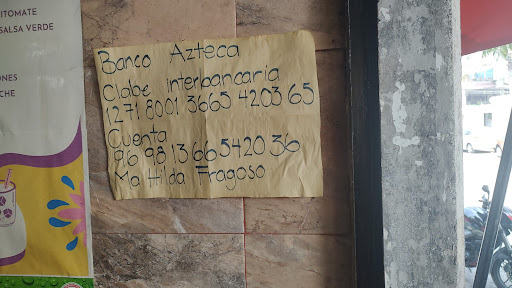 ITOMATE
SALSA VERDE
ONES
CHE
Banco Azteca
Clabe Interbancaria
1271 8001 3665 4203 65
Cuenta
9698 1366542036
Ma Hilda Fragoso